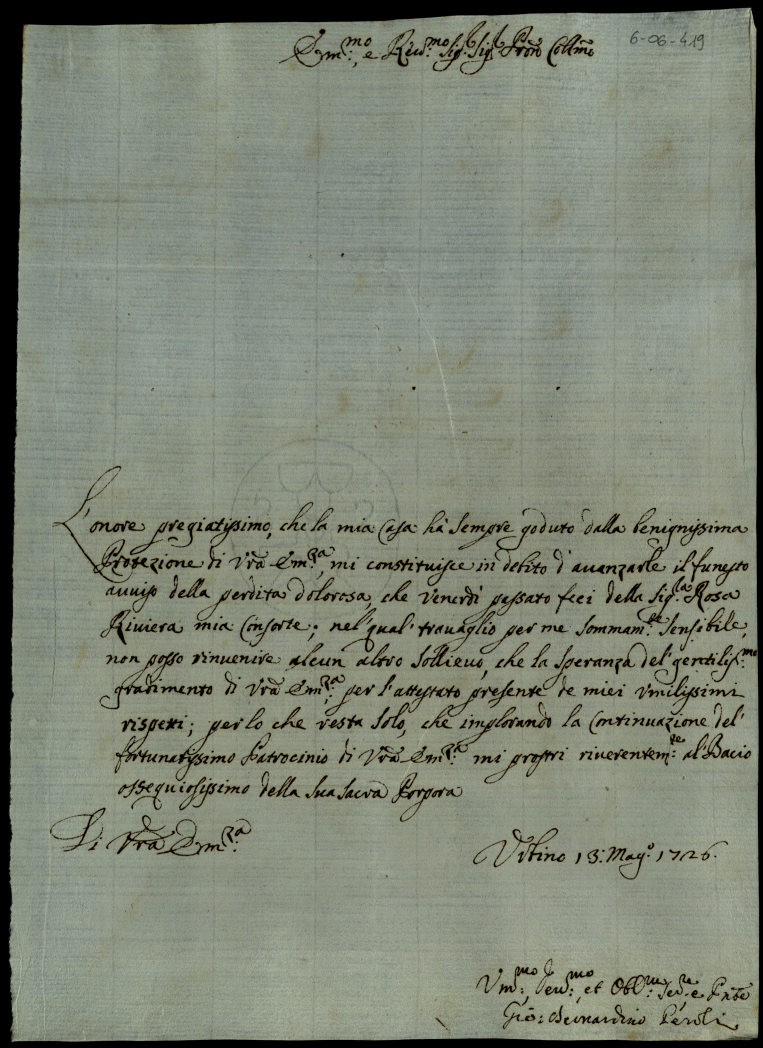 6-06-419
Em.mo, e Rev.mo Sig.r Sig.r Pron Collmo
L'onore pregiatissimo, che la mia Casa hà sempre goduto dalla benignissima
Protezione di Vrã Em.za, mi constituisce in debito d'avanzarle il funesto
avviso della perdita dolorosa, che Venerdì passato feci della Sig.la Rosa
Riviera mia Consorte; nel qual' travaglio per me sommam.te sensibile,
non posso rinvenire alcun altro sollievo, che la speranza del' gentiliss.mo
gradimento di Vrã Em.za, per l'attestato presente de miei Vmilissimi
rispetti; per lo che resta solo, che implorando la Continuazione del'
fortunatissimo Patrocinio di Vrã Em.za mi prostri riverentem.te al' Bacio
ossequiosissimo della sua sacra Porpora
Di Vrã Em.za
Vrbino 13: Mag.o 1726.
Vm.mo Dev.mo, et Obb.mo Ser.re e
Gio: Bernardino Peroli